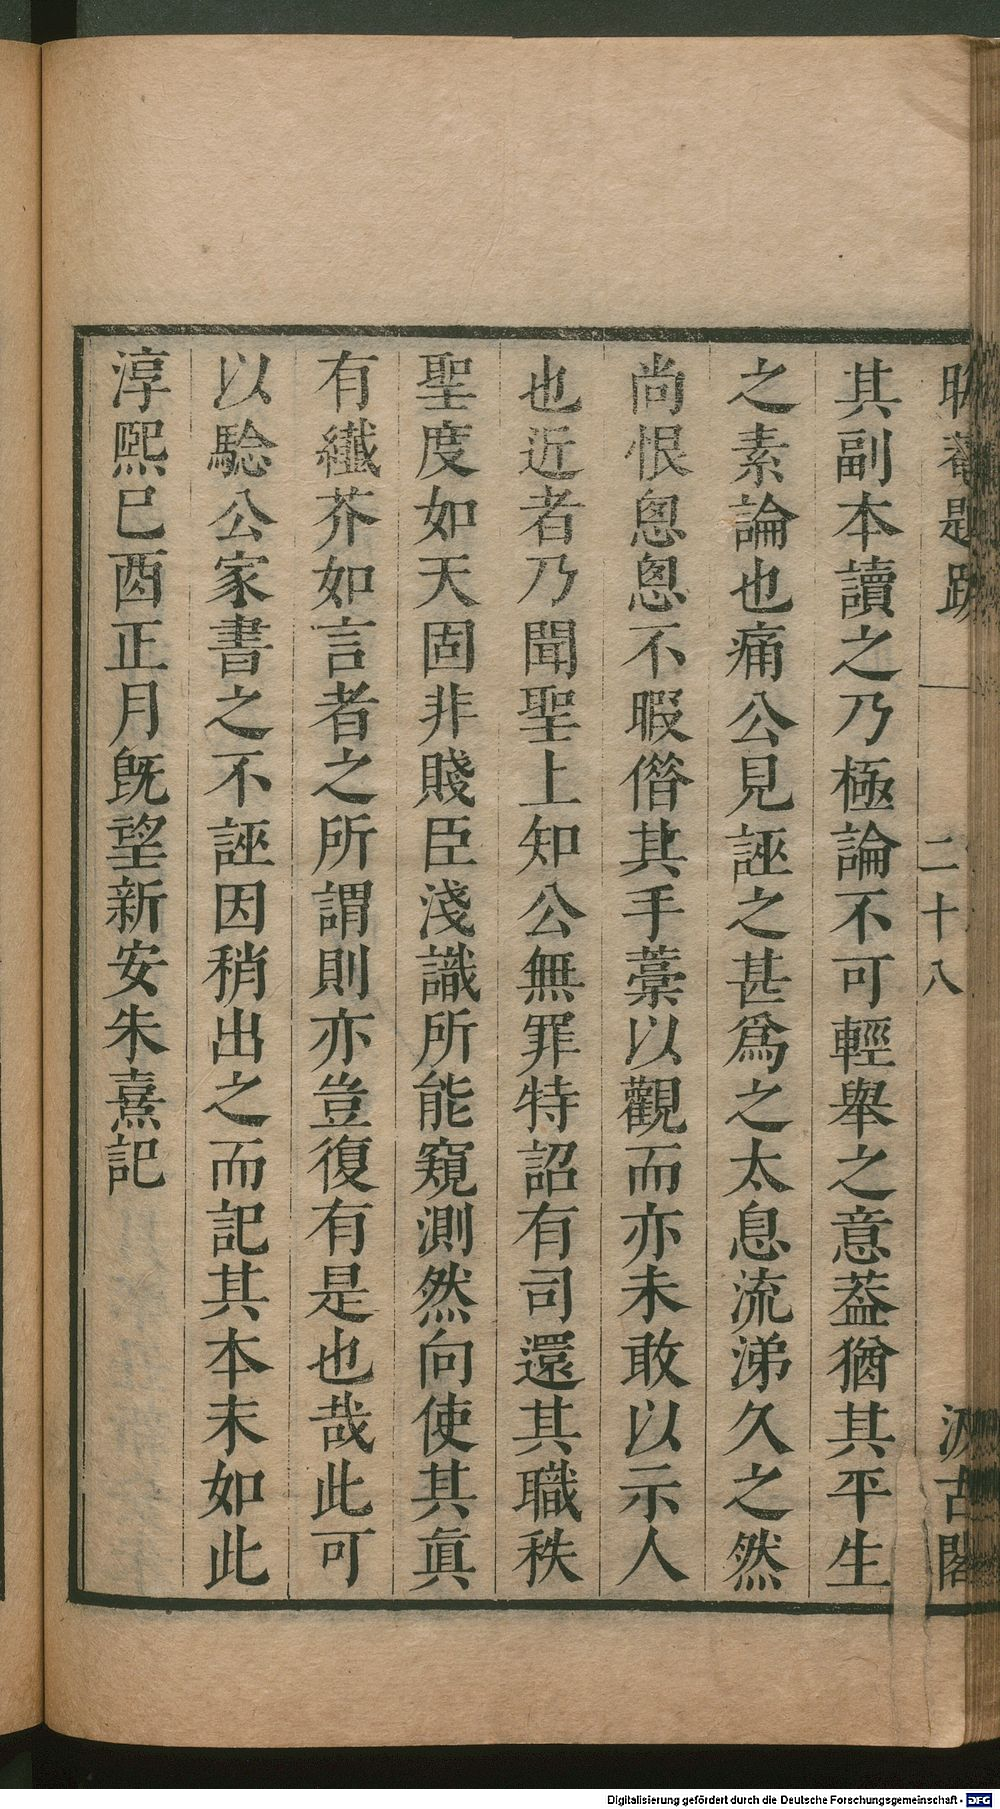 晦菴題跋
二十八
汲古閣
其副本讀之乃極論不可輕舉之意葢猶其平生
之素論也痛公見誣之甚爲之太息流涕久之然
尚恨悤悤不暇僣其手藁以觀而亦未敢以示人
也近者乃聞聖上知公無罪特詔有司還其職秩
聖度如天固非賤臣淺識所能窺測然向使其眞
有纖芥如言者之所謂則亦豈復有是也哉此可
以騐公家書之不誣因稍出之而記其本末如此
淳熙巳酉正月旣望新安朱熹記
Digitalisierung gefördert durch die Deutsche Forschungsgemeinschaft - DFG